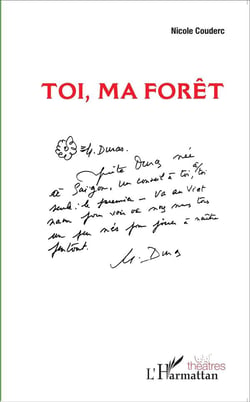 Nicole Couderc
TOI, MA FORÊT
M. Duras.
Duras née
à Saigon, un conseil à toi, toi
seule : le premier – va au Viet
nam pour voir où
un peu nés pour à naître
partout.
M. Duras
théâtres
L'Harmattan